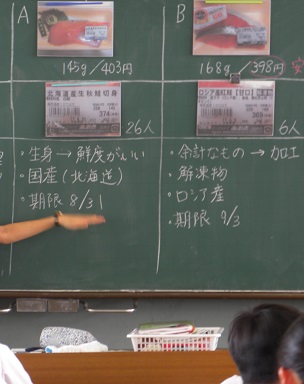 A
145g/403円
北海道産生秋鮭切身
26人
・生身→鮮度がいい
・国産(北海道)
・期限 8/31
B
168g/398円
ロシア産紅鮭
6人
・余計なもの→加工
・解凍物
・ロシア産
・期限 9/3